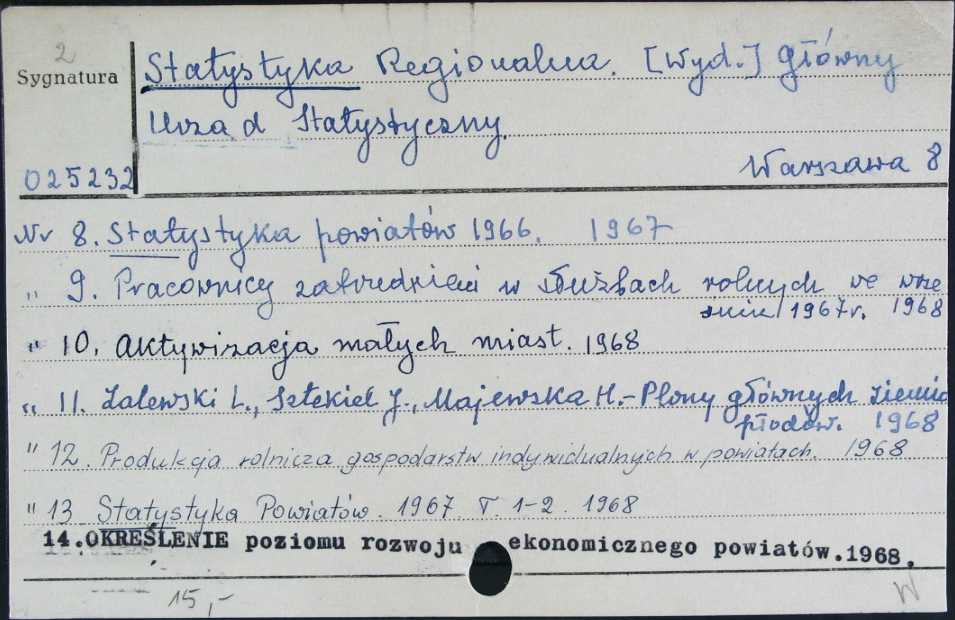 2
Sygnatura
Statystyka Regionalna. [Wyd.] Główny
Urząd Statystyczny.
025232
Warszawa 8
Nr 8. Statystyka powiatów 1966. 1967
" 9. Pracownicy zatrudnieni w służbach rolnych we wrze
śniu 1967r. 1968
" 10. Aktywizacja małych miast. 1968
" 11. Zalewski L., Sztekiel J., Majewska H.- Plony głównych ziemio
płodów. 1968
" 12. Produkcja rolnicza gospodarstw indywidualnych w powiatach. 1968
" 13 Statystyka Powiatów. 1967. T. 1-2. 1968
14.OKREŚLENIE poziomu rozwoju ekonomicznego powiatów.1968.
15,-
W